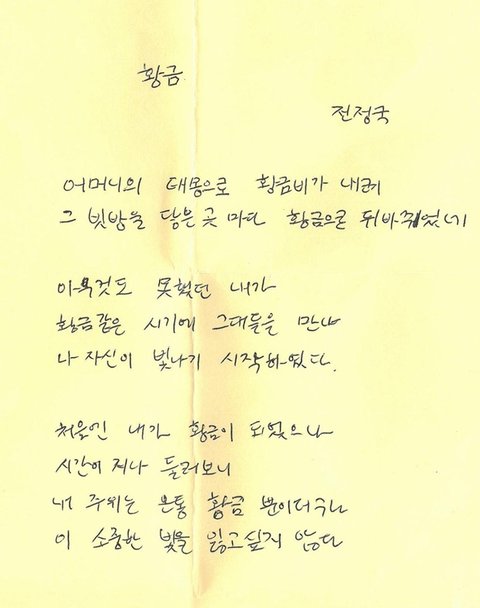 황금
전정국
어머니의 태몽으로 황금비가 내려
그 빗방울 닿은 곳 마다 황금으로 뒤바뀌었네
아무것도 못했던 내가
황금같은 시기에 그대들을 만나
나 자신이 빛나기 시작하였다.
처음엔 내가 황금이 되었으나
시간이 지나 둘러보니
내 주위는 온통 황금 뿐이더구나
이 소중한 빛을 잃고싶지 않다